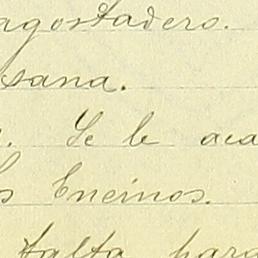 agostadero.
sana.
. Se le aca
s Encinos.
Falta para